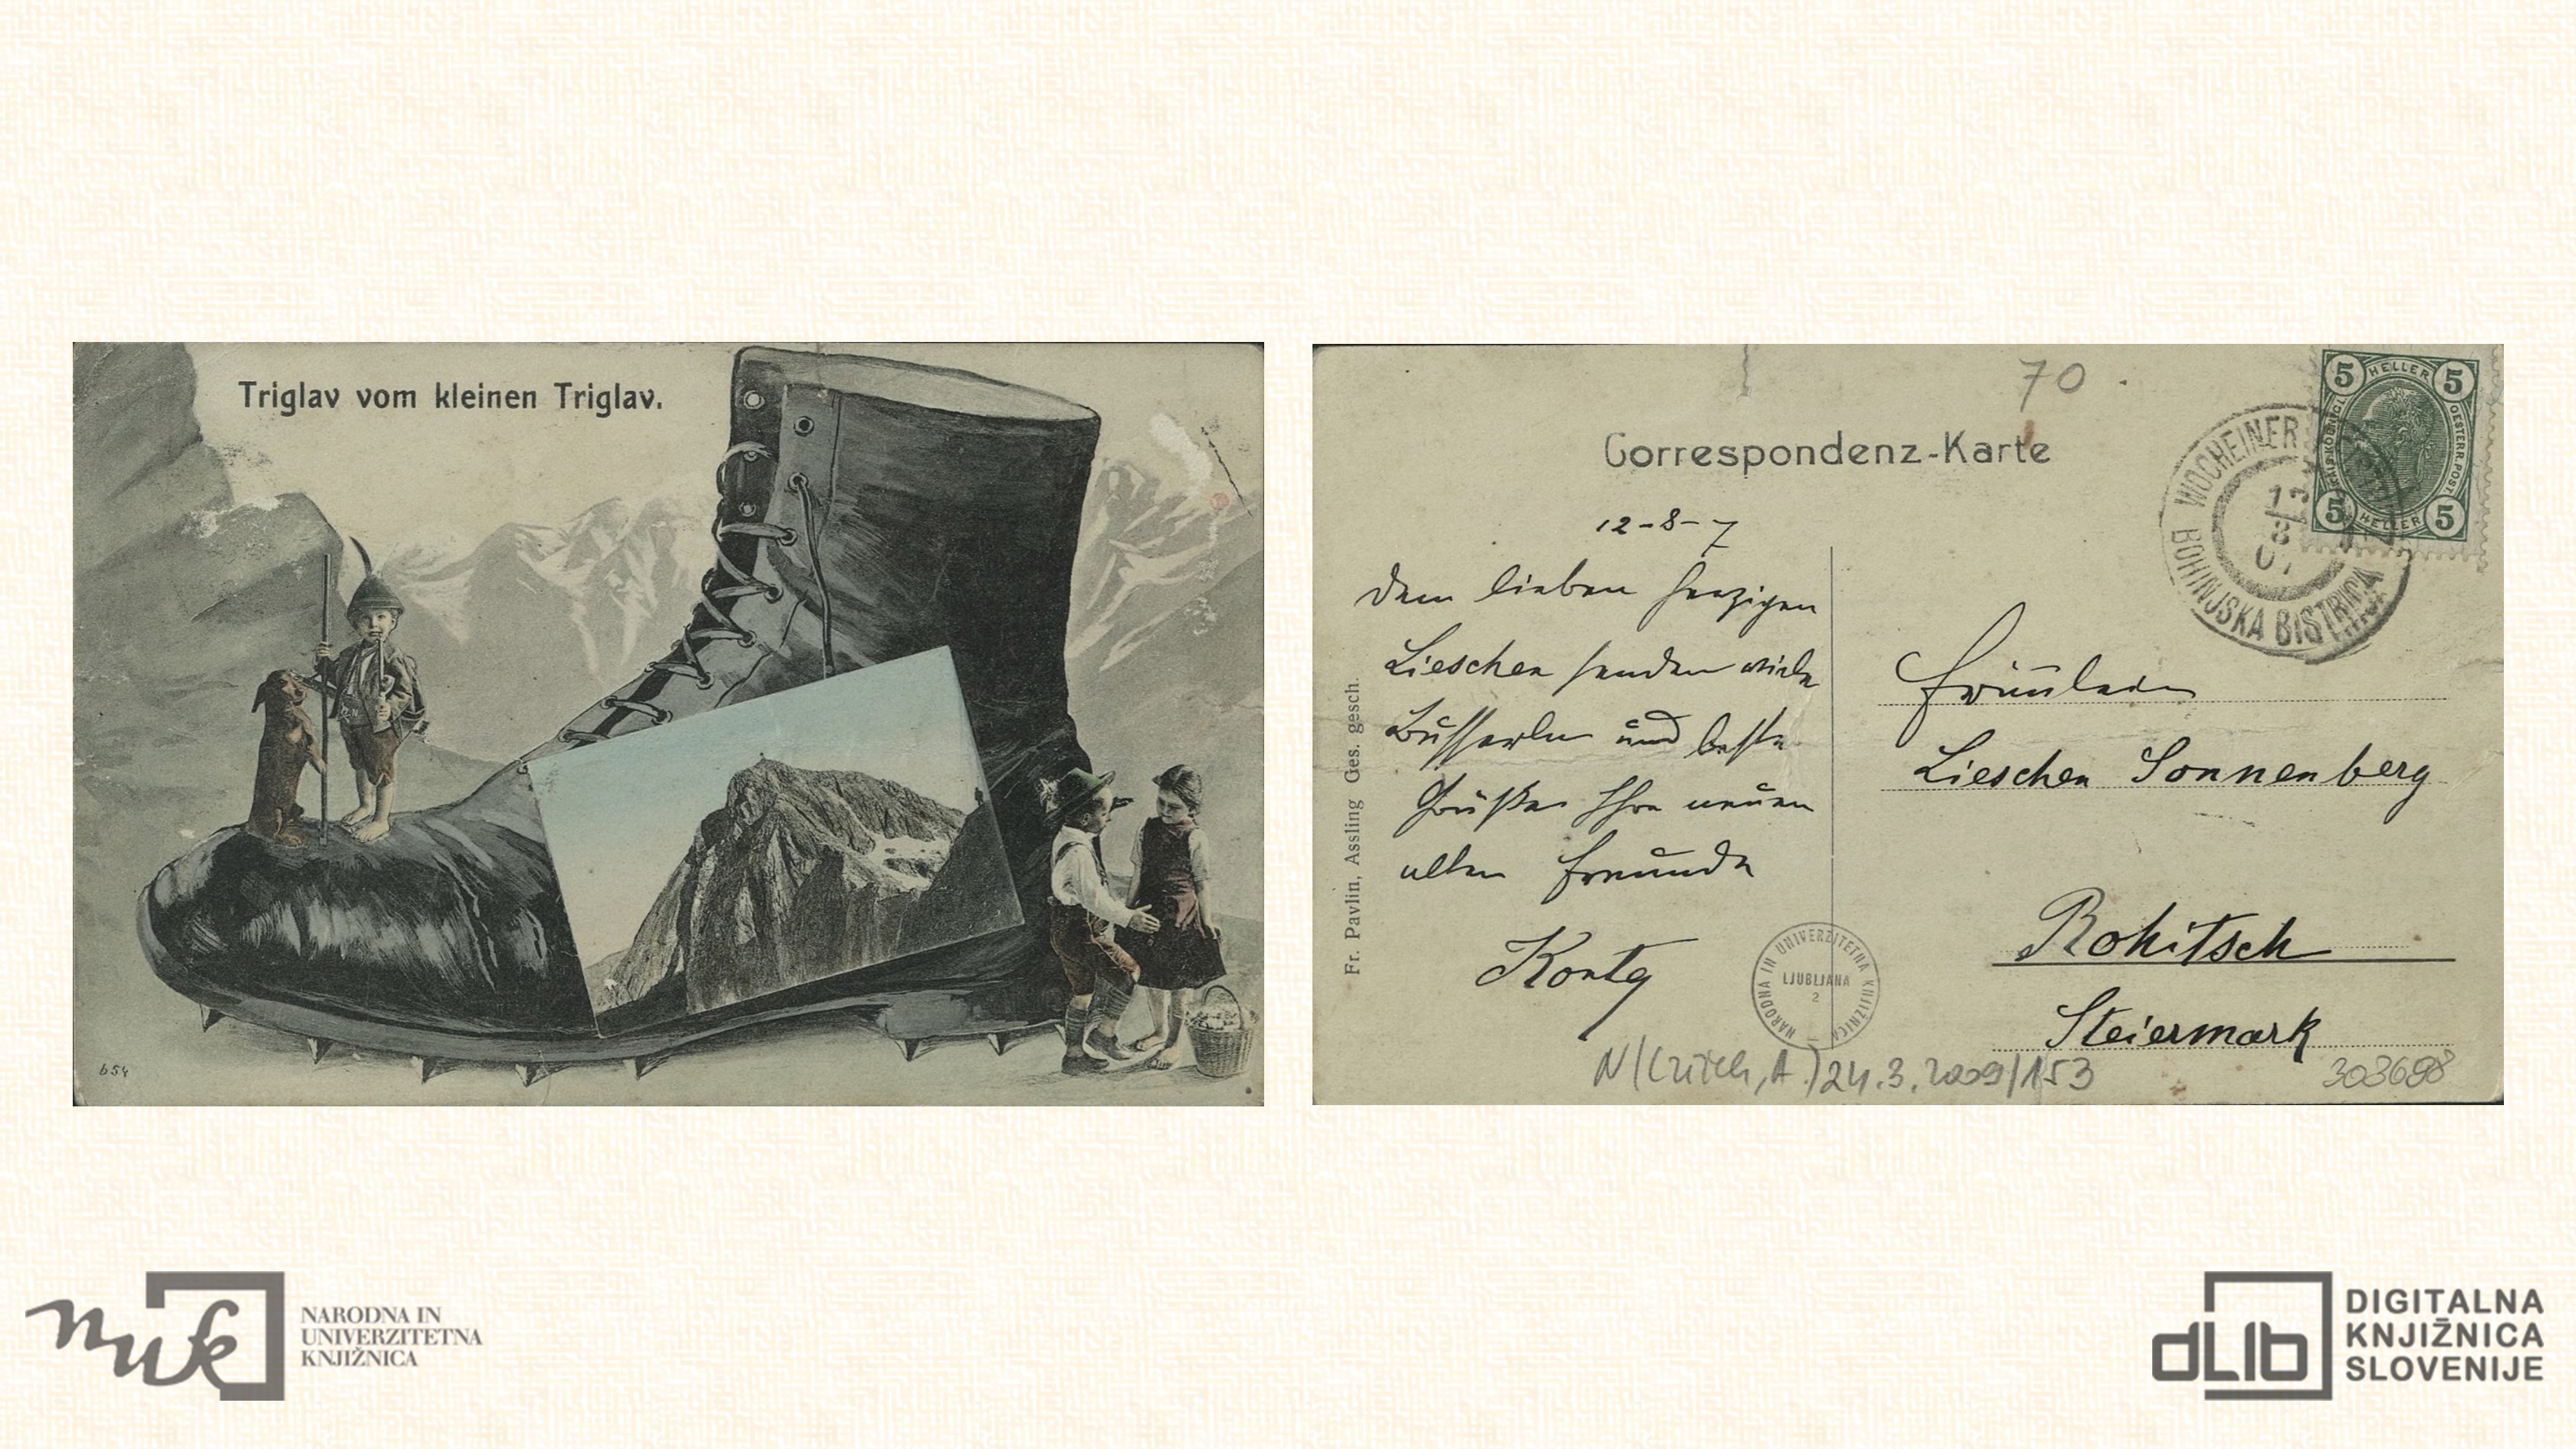 Triglav vom kleinen Triglav.
654
Correspondenz-Karte
70
5 HELLER 5
OESTERR. POST
5 HELLER 5
WOCHEINER
12
8
07
BOHINJSKA BISTRICA
12-8-7
Dem lieben herzigen
Lieschen senden viele
Busserln und beste
Grüße Ihre neuen
alten Freunde
Fräulein
Lieschen Sonnenberg
Rohitsch
Steiermark
Fr. Pavlin, Assling Ges. gesch.
NARODNA IN UNIVERZITETNA KNJIŽNICA
LJUBLJANA
2
24.3.2009/153
303698
nuk
NARODNA IN
UNIVERZITETNA
KNJIŽNICA
dLib
DIGITALNA
KNJIŽNICA
SLOVENIJE